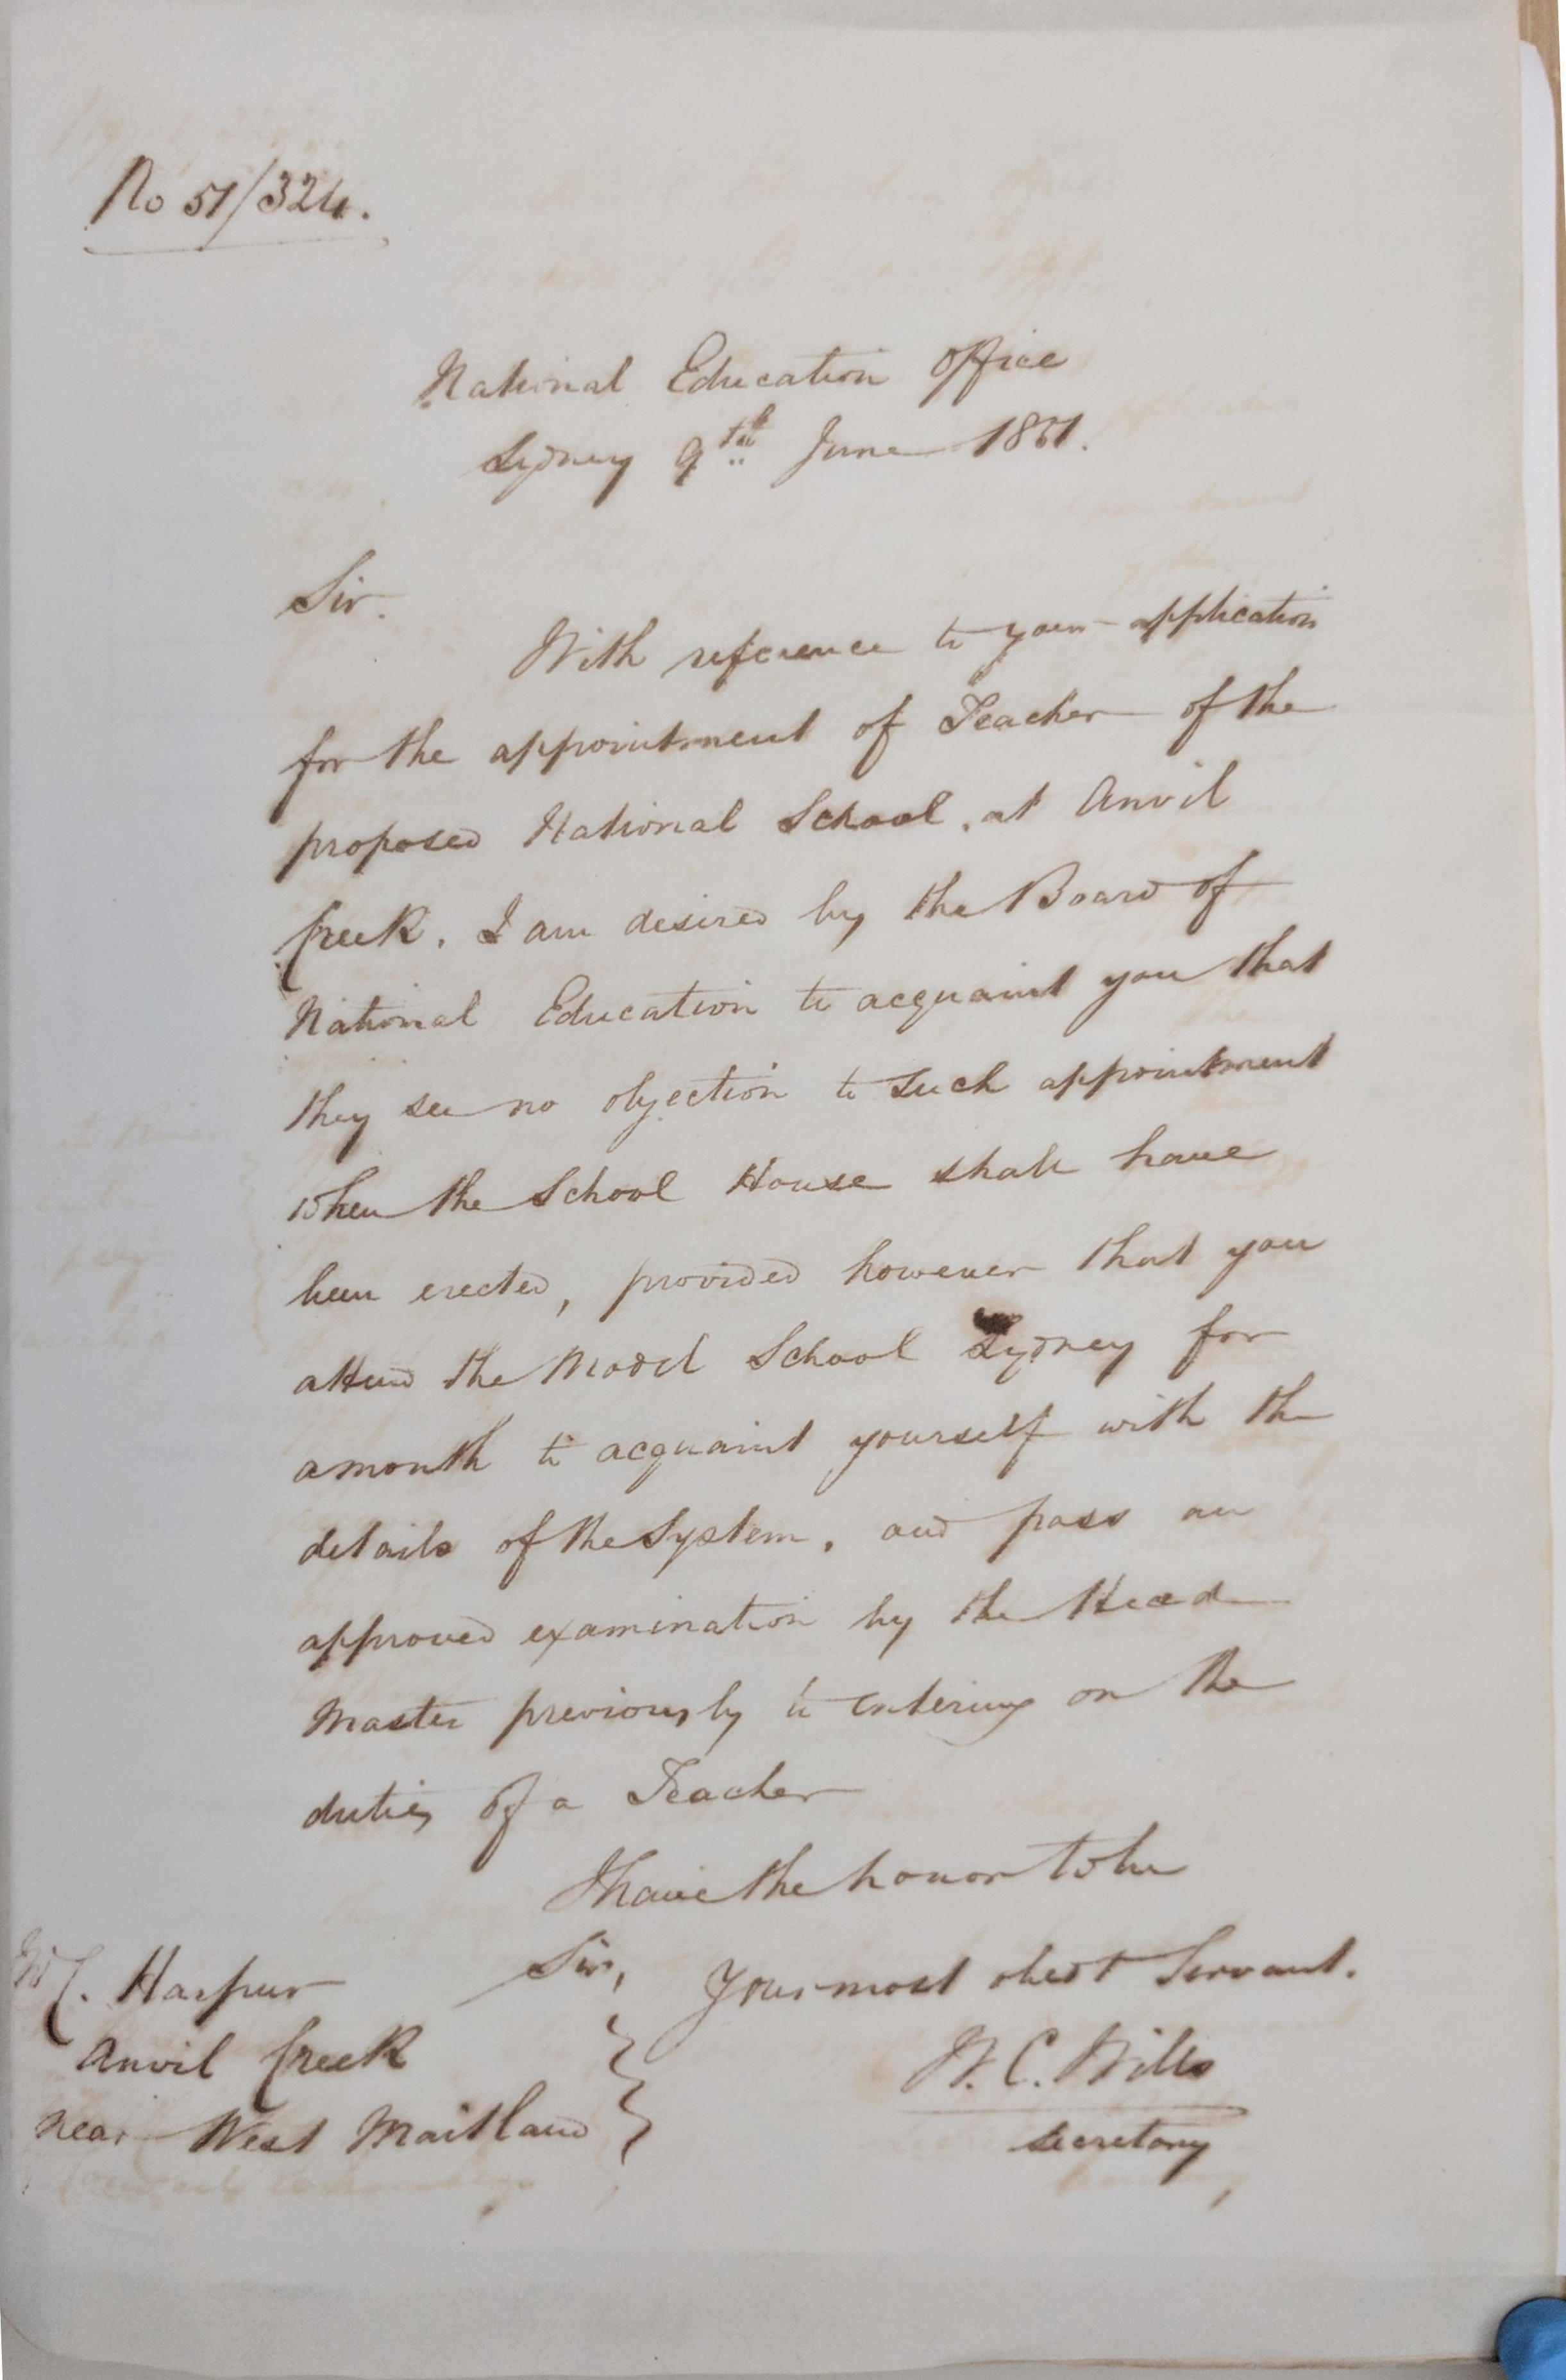 No 51/324.
National Education Office
Sydney 9th June 1851.
Sir.
With reference to your application
for the appointment of Teacher of the
proposed National School, at Anvil
Creek. I am desired by the Board of
National Education to acquaint you that
they see no objection to such appointment
when the School House shall have
been erected, provided however that you
attend the Model School Sydney for
a month to acquaint yourself with the
details of the System, and pass an
approved examination by the Head
Master previously to entering on the
duties of a Teacher
I have the honor to be
Sir,
Your most obedt Servant.
W. C. Wills
Secretary
Mr C. Harpur
Anvil Creek
near West Maitland